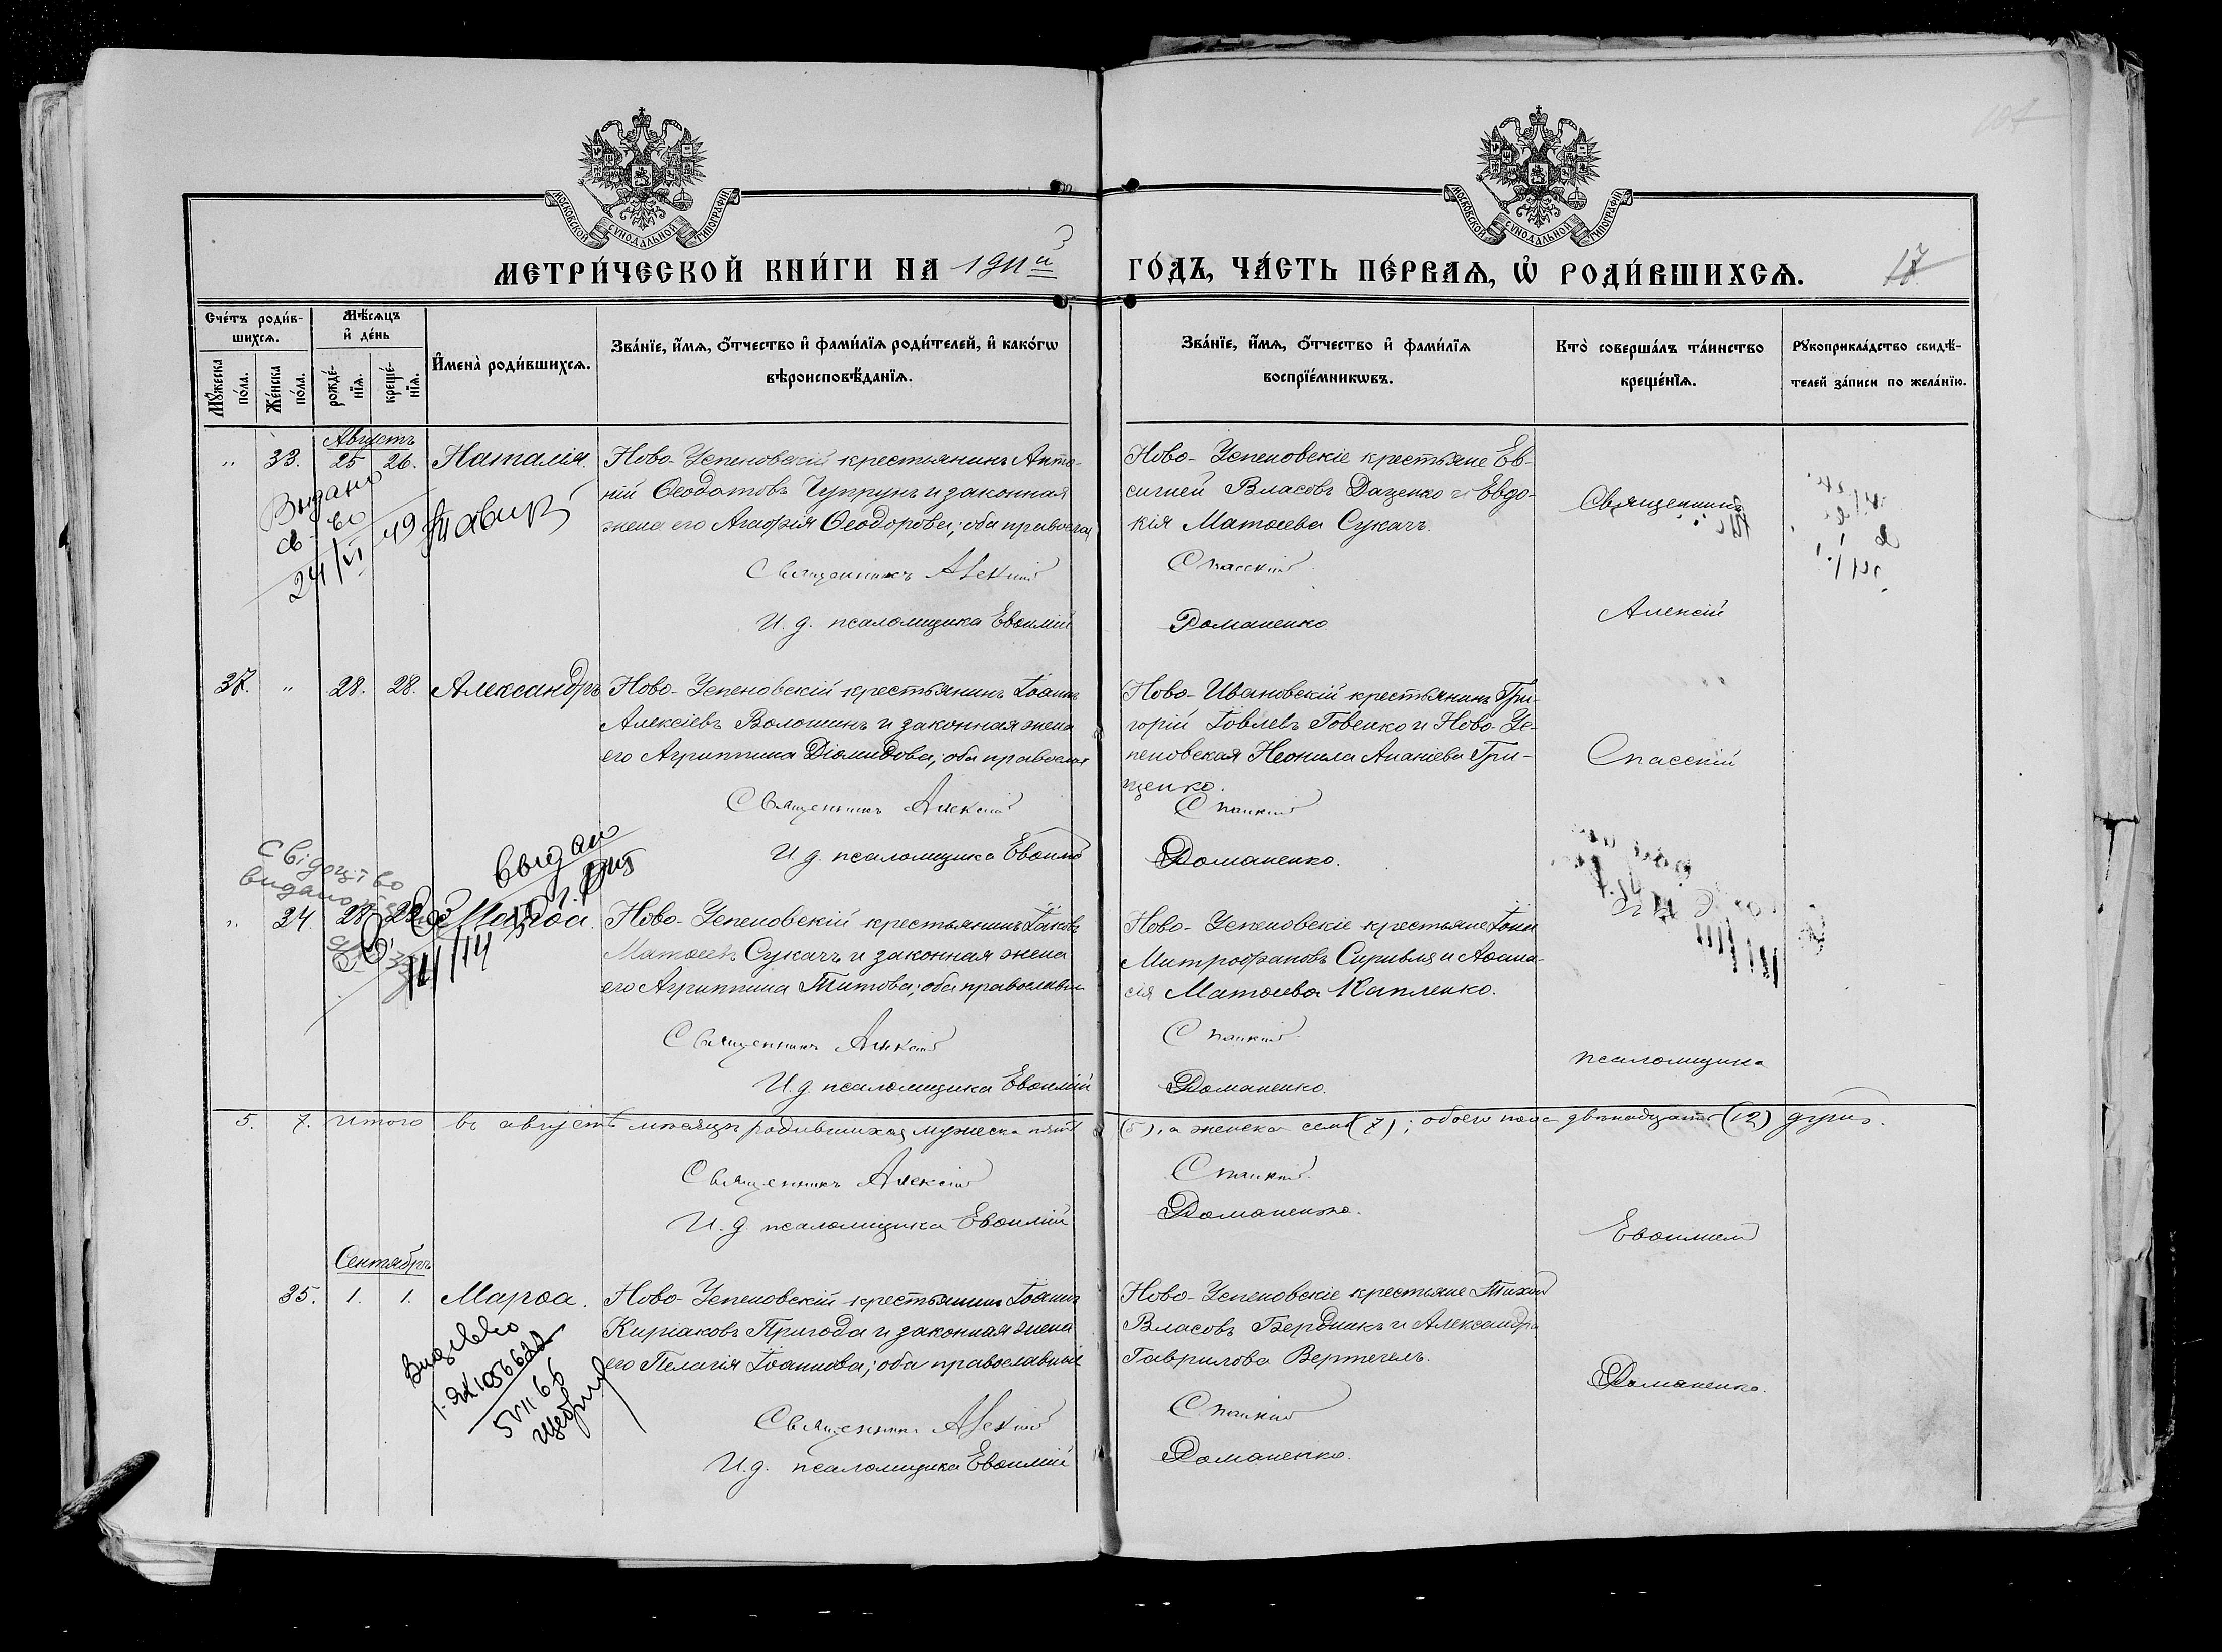 МОСКОВСКОЙ СѴНОДАЛЬНОЙ ТИПОГРАФІИ
МОСКОВСКОЙ СѴНОДАЛЬНОЙ ТИПОГРАФІИ
МЕТРИ́ЧЕСКОЙ КНИ́ГИ НА 1911й ГО́ДЪ, ЧА́СТЬ ПЕ́РВАѦ, Ѡ҆ РОДИ́ВШИХСѦ.
17
Сче́тъ роди́в-
шихсѧ.
Мꙋ́жеска по́ла.
Же́нска по́ла.
Мѣ́сѧцъ
и҆ де́нь
рожде́-
нїѧ.
креще́-
нїѧ.
И҆мена̀ роди́вшихсѧ.
Зва́нїе, и҆́мѧ, ѻ҆́тчество и҆ фами́лїѧ роди́телей, и҆ како́гѡ
вѣроисповѣ́данїѧ.
Зва́нїе, и҆́мѧ, ѻ҆́тчество и҆ фами́лїѧ
воспрїе́мникѡвъ.
Кто̀ соверша́лъ та́инство
креще́нїѧ.
Рꙋкоприкла́дство свидѣ́-
телей за́писи по жела́нїю.
Августъ
" 33. 25 26. Наталія. Ново-Успеновскій крестьянинъ Анто-
ній Ѳеодотовъ Чупрунъ и законная
жена его Агафія Ѳеодорова; оба правосла
Священникъ Алексій
И. д. псаломщика Евѳимій
Выдано
св-во
24/VI 49
Ново-Успеновскіе крестьяне Ев-
сигней Власовъ Даценко и Евдо-
кія Матѳеева Сукачъ.
Спасскій
Романенко.
Священникъ
Алексій
37. " 28. 28. Александръ Ново-Успеновскій крестьянинъ Іоаннъ
Алексіевъ Волошинъ и законная жена
его Агриппина Діомидова; оба правосла
Священникъ Алексій
И. д. псаломщика Евѳимій
Ново-Ивановскій крестьянинъ Гри-
горій Іовлевъ Говенко и Ново-Ус-
пеновская Неонила Ананіева Гри-
щенко.
Спасскій
Романенко.
Спасскій
Свідоцтво
видано
выдан
" 34. 28 Марѳа. Ново-Успеновскій крестьянинъ Іаковъ
Матѳеевъ Сукачъ и законная жена
его Агриппина Титова; оба православн
Священникъ Алексій
И. д. псаломщика Евѳимій
Ново-Успеновскіе крестьяне Іоан
Митрофановъ Сиривля и Аѳана-
сія Матѳеева Капленко.
Спасскій
Романенко.
псаломщика
5. 7. Итого въ августѣ мѣсяцѣ родившихся мужеска пять (5), а женска семь (7); обоего пола двѣнадцать (12) душъ.
Священникъ Алексій
И. д. псаломщика Евѳимій
Спасскій
Романенко.
Евѳимій
Сентябрь
35. 1. 1. Марѳа. Ново-Успеновскій крестьянинъ Іоаннъ
Киріаковъ Пригода и законная жена
его Пелагія Іоаннова; оба православные
Священникъ Алексій
И. д. псаломщика Евѳимій
5 VII 66
Ново-Успеновскіе крестьяне Тихон
Власовъ Бердникъ и Александра
Гаврилова Вертегелъ.
Спасскій
Романенко.
Романенко.